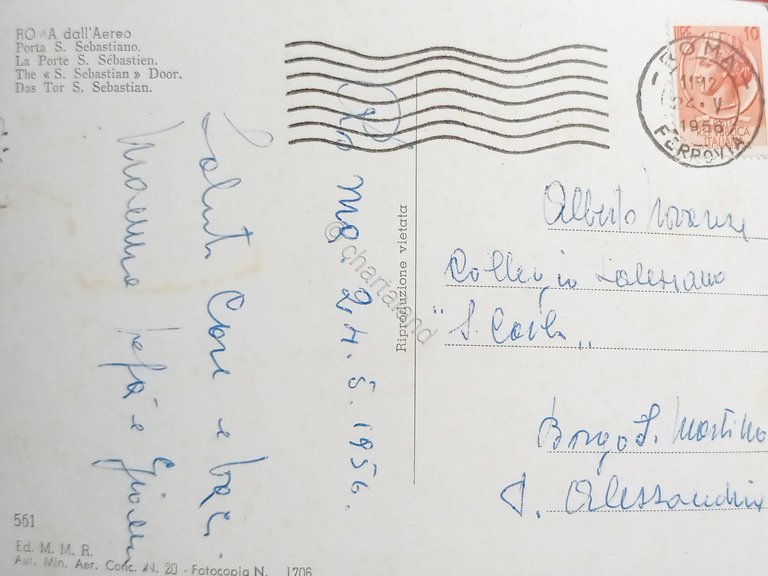 ROMA dall'Aereo
Porta S. Sebastiano.
La Porte S. Sébastien.
The « S. Sebastian » Door.
Das Tor S. Sebastian.
LIRE 10
REPUBBLICA
ITALIANA
ROMA
11-12
24. V
1956
FERROVIA
Roma. 24. 5. 1956.
Saluti Cari e baci
Mamma papà e
Riproduzione vietata
Alberto
Collegio Salesiano
"S. Carlo"
Borgo S. Martino
Alessandria
561
Ed. M. M. R.
Aut. Min. Aer. Conc. N. 20 - Fotocopia N. 1706
© chartaland